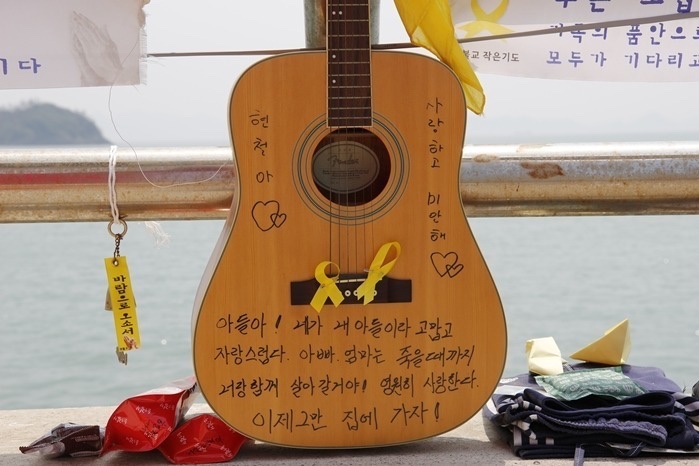 다
두는 고맙
가족의 품안으로
북교 작은기도
모두가 기다리고
현철아
사랑하고 미안해
Fender
바람으로 오소서
아들아! 네가 내 아들이라 고맙고
자랑스럽다. 아빠. 엄마는 죽을때까지
너랑함께 살아갈거야! 영원히 사랑한다.
이제그만 집에 가자!